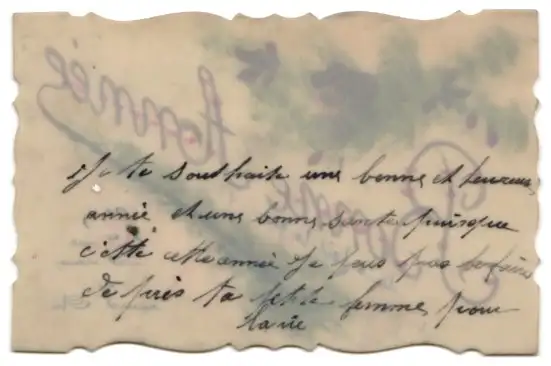 Je te souhaite une bonne et heureuse
année et une bonne sante puisque
c'ette cette année je peus pas le faire
de près ta petite femme pour
la vie